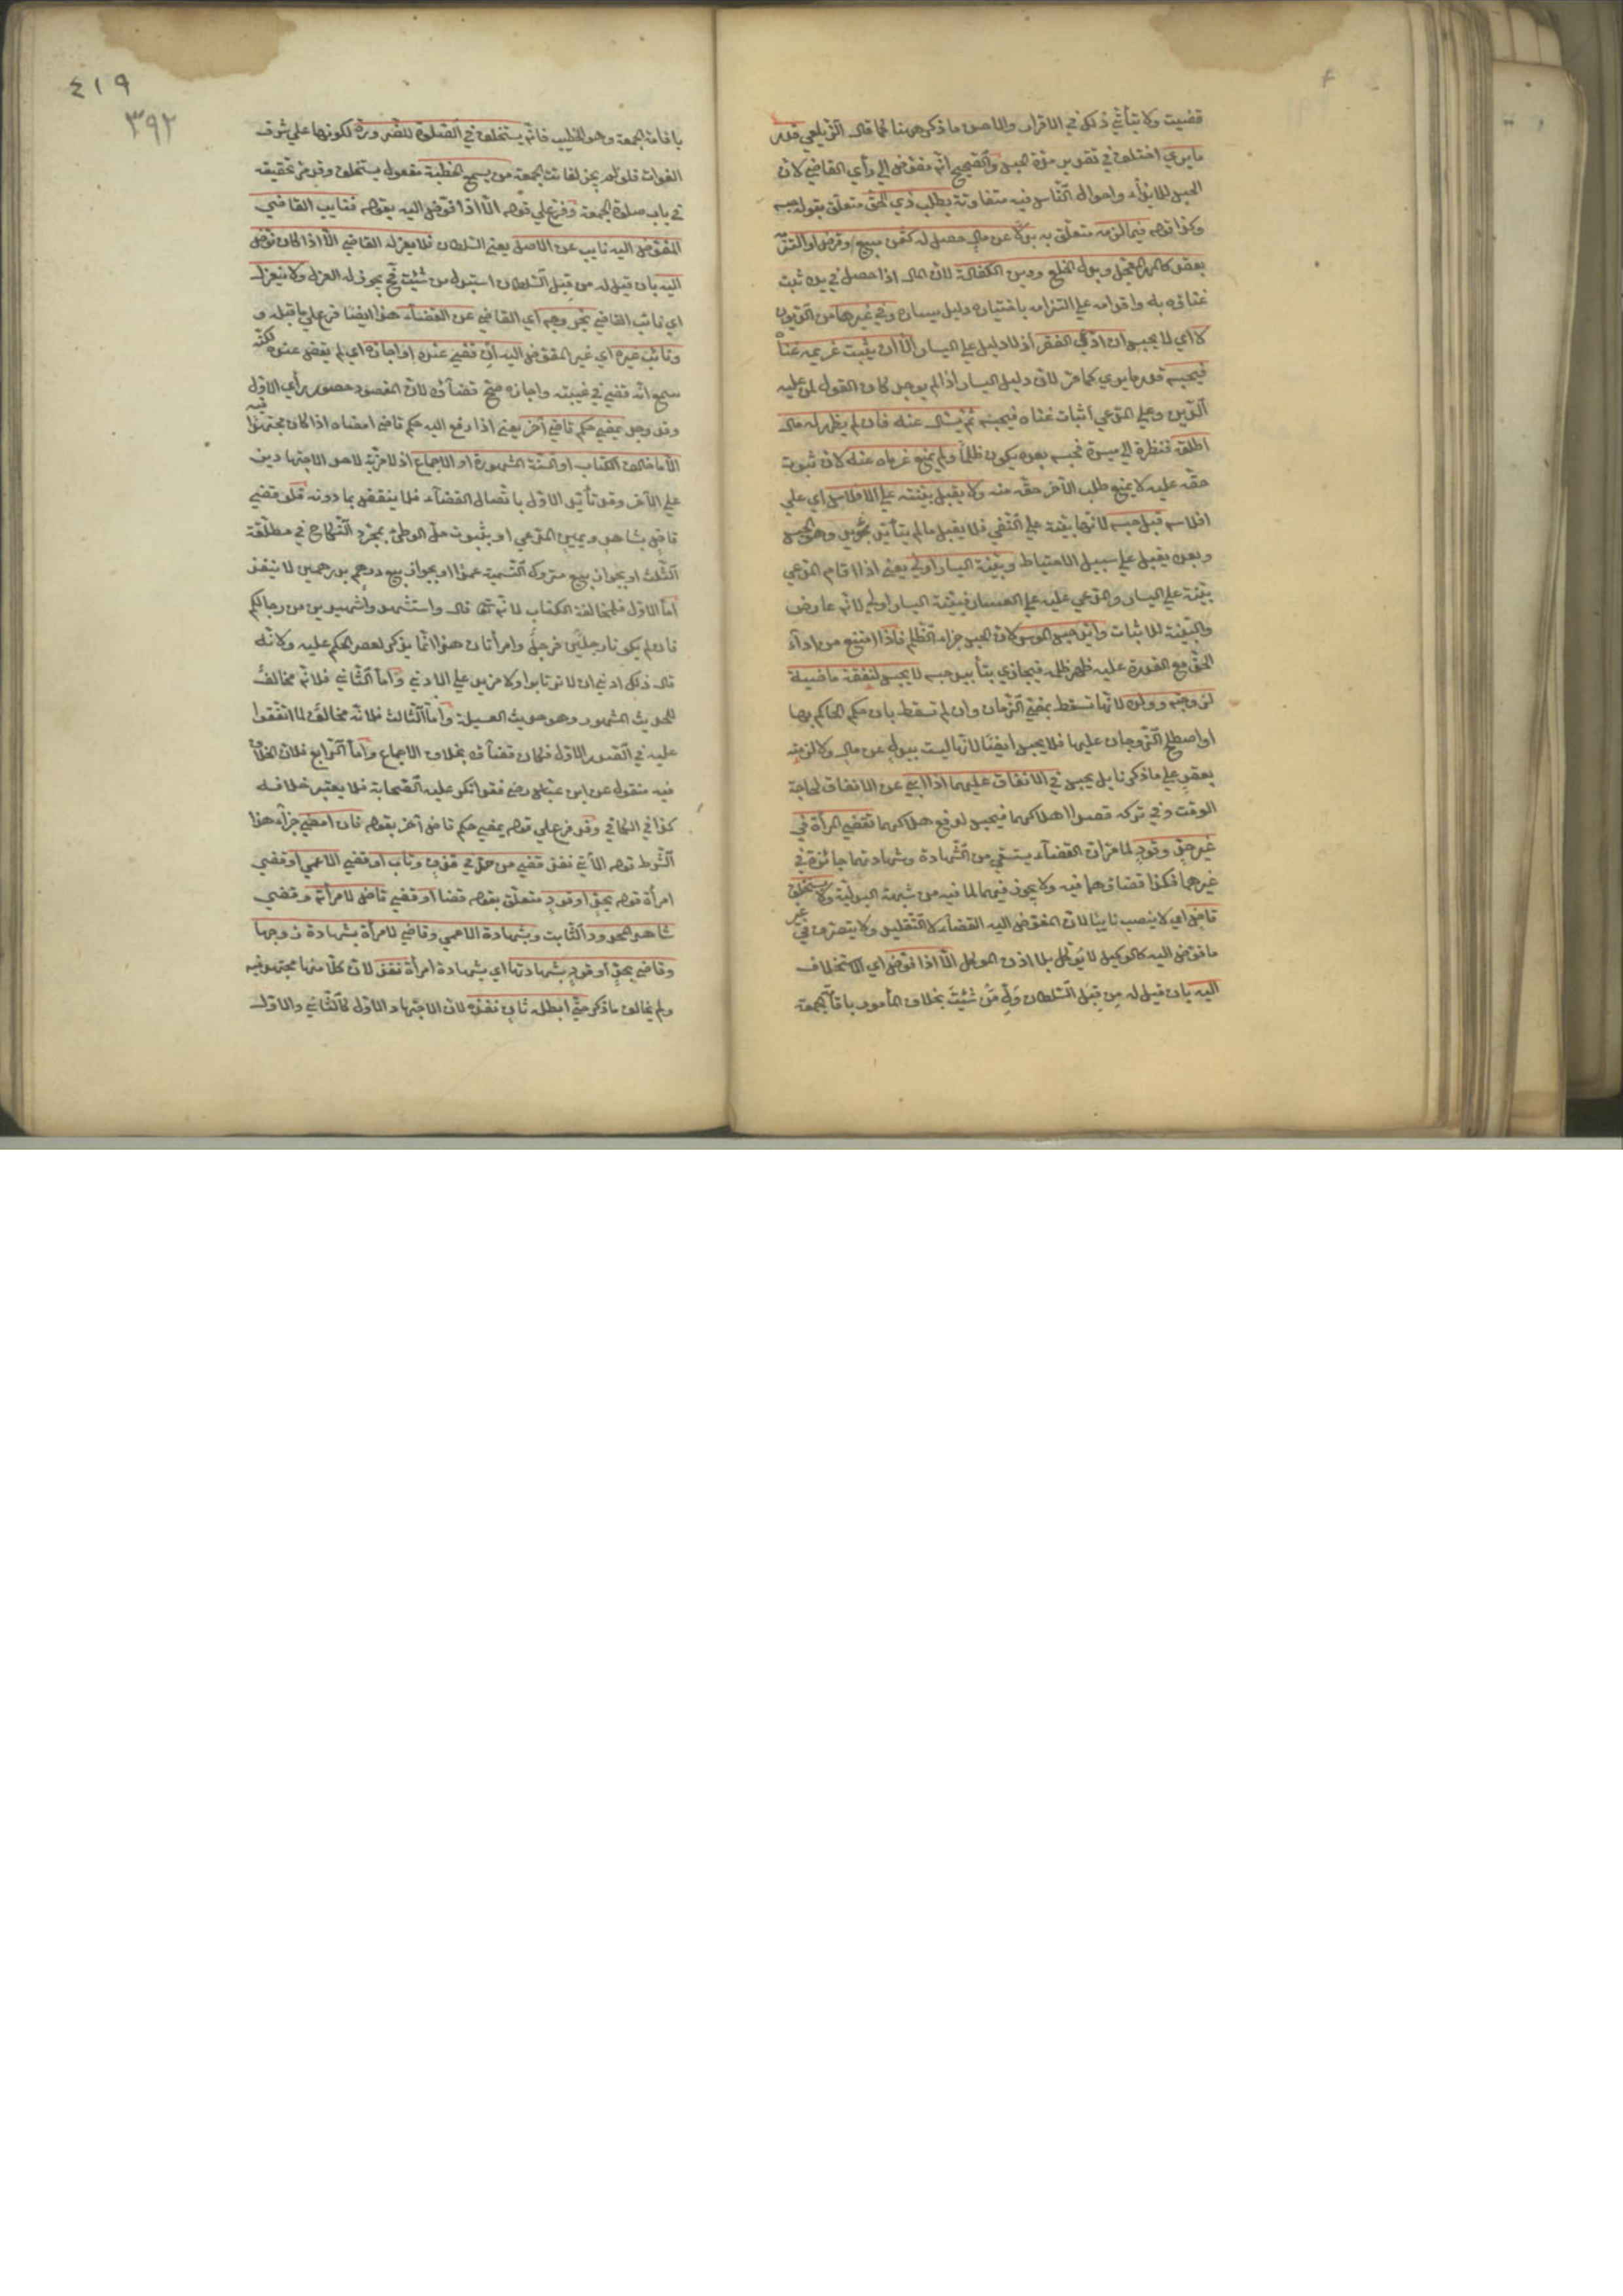 قضيت ولا يتأتي ذلك في الاقرار والاصل ما ذكر هنا كما قال الزيلعي قدر
ما يري اختلف في تقدير مدة الحبس والصحيح انه مفوض الي رأي القاضي لان
الحبس للايذاء واحوال الناس فيه متفاوتة بطلب ذي الحق متعلق بقوله حبسه
وكذا قوله فيما لزمه متعلق به بدلا عن مال حصل له كثمن مبيع وقرض او التزمه
بعقد كالمهر المعجل وبدل الخلع ودين الكفالة لان المال اذا حصل في يده ثبت
غناؤه به واقدامه علي التزامه باختياره دليل يساره وفي غيرها من الديون
لا اي لا يحبس ان ادعي الفقر اذ لا دليل علي اليسار الا ان يثبت غريمه غناه
فيحبسه قدر ما يري كما مر لان دليل اليسار اذا لم يوجد كان القول لمن عليه
الدين وعلي المدعي اثبات غناه فيحبسه ثم يسأل عنه فان لم يظهر له مال
اطلقه فنظرة الي ميسرة فحبسه بعده يكون ظلما ولم يمنع غرماءه عنه لان ثبوت
حقه عليه لا يمنع طلب الآخر حقه منه ولا يقبل بينته علي الافلاس اي علي
افلاسه قبل حبسه لانها بينة علي النفي فلا يقبل ما لم يتأيد بمؤيد وهو الحبس
وبعده يقبل علي سبيل الاحتياط وبينة اليسار اولي يعني اذا اقام المدعي
بينة علي اليسار والمدعي عليه علي العسار فبينة اليسار اولي لانه عارض
والبينة للاثبات وابد حبس الموسر لان الحبس جزاء الظلم فاذا امتنع من اداء
الحق مع القدرة عليه ظهر ظلمه فيجازي بتأبيد حبسه لا يحبس لنفقة ماضية
لزوجته وولده لانها تسقط بمضي الزمان وان لم تسقط بان حكم الحاكم بها
او اصطلح الزوجان عليها فلا يحبس ايضا لانها ليست ببدل عن مال ولا لزمته
بعقد علي ما ذكرنا بل يحبس في الانفاق عليهما اذا ابي عن الانفاق لحاجة
الوقت وفي تركه قصد اهلاكهما فيحبس لدفع هلاكهما تقضي المرأة في
غير حد وقود لما مر ان القضاء يستقي من الشهادة وشهادتها جائزة في
غيرهما فكذا قضاؤها فيه ولا يجوز فيهما لما فيه من شبهة البدلية ولا يستخلف
قاض اي لا ينصب نايبا لان المفوض اليه القضاء لا التقليد ولا يتصرف في غير
ما فوض اليه كالوكيل لا يوكل بلا اذن الموكل الا اذا فوض اي الاستخلاف
اليه بان قيل له من قبل السلطان ول من شئت بخلاف المأمور باقامة الجمعة
٤١٩
٣٩٢
باقامة الجمعة وهو الخطيب فانه يستخلف في الصلوة للضرورة لكونها علي شرف
الفوات فلو لم يجز لفاتت الجمعة من يسمع الخطبة مفعول يستخلف وقد مر تحقيقه
في باب صلوة الجمعة وفرع علي قوله الا اذا فوض اليه بقوله فنايب القاضي
المفوض اليه نايب عن الاصل يعني السلطان فلا يعزله القاضي الا اذا كان فوض
اليه بان قيل له من قبل السلطان استبدل من شئت فح يجوز له العزل ولا ينعزل
اي نائب القاضي بخروجه اي القاضي عن القضاء هذا ايضا فرع علي ما قبله و
ونائب غيره اي غير المفوض اليه ان قضي عنده او اجازه اي لم يقض عنده لكنه
سمع انه قضي في غيبته واجازه صح قضاؤه لان المقصود حصور رأي الاول
وقد وجد يمضي حكم قاضي آخر يعني اذا رفع اليه حكم قاضي امضاه اذا كان مجتهدا فيه
الا ما خالف الكتاب او السنة المشهورة او الاجماع اذ لا مزية لاحد الاجتهادين
علي الآخر وقد تأيد الاول باتصال القضاء فلا ينقض بما دونه فلو قضي
قاض بشاهد ويمين المدعي او بثبوت حل الوطئ بمجرد النكاح في مطلقة
الثلث او بجواز بيع متروك التسمية عمدا او بجواز بيع درهم بدرهمين لا ينفذ
اما الاول فلمخالفة الكتاب لانه تعالى قال واستشهدوا شهيدين من رجالكم
فان لم يكونا رجلين فرجل وامرأتان هذا انما يذكر لقصر الحكم عليه ولانه
قال ذلك ادني ان لا ترتابوا ولا مزيد علي الادني واما الثاني فلانه مخالف
للحديث المشهور وهو حديث العسيلة واما الثالث فلانه مخالف لما اتفقوا
عليه في الصدر الاول فكان قضاؤه بخلاف الاجماع واما الرابع فلان الخلاف
فيه منقول عن ابن عباس رضي فقد انكر عليه الصحابة فلا يعتبر خلافه
كذا في الكافي وقد فرع علي قوله يمضي حكم قاض آخر بقوله فان امضي جزاء هذا
الشرط قوله الآتي نفذ قضي من حد في قذف وتاب او قضي الاعمي او قضي
امرأة قوله بحد او قود متعلق بقوله قضا او قضي قاض لامرأته وقضي
شاهد المحدود التايب وبشهادة الاعمي وقاضي لامرأة بشهادة زوجها
وقاضي بحد او قود بشهادتها اي بشهادة امرأة نفذ لان كلا منها مجتهد فيه
ولم يخالف ما ذكر حتي ابطله ثان نفذه لان الاجتهاد الاول كالثاني والاول